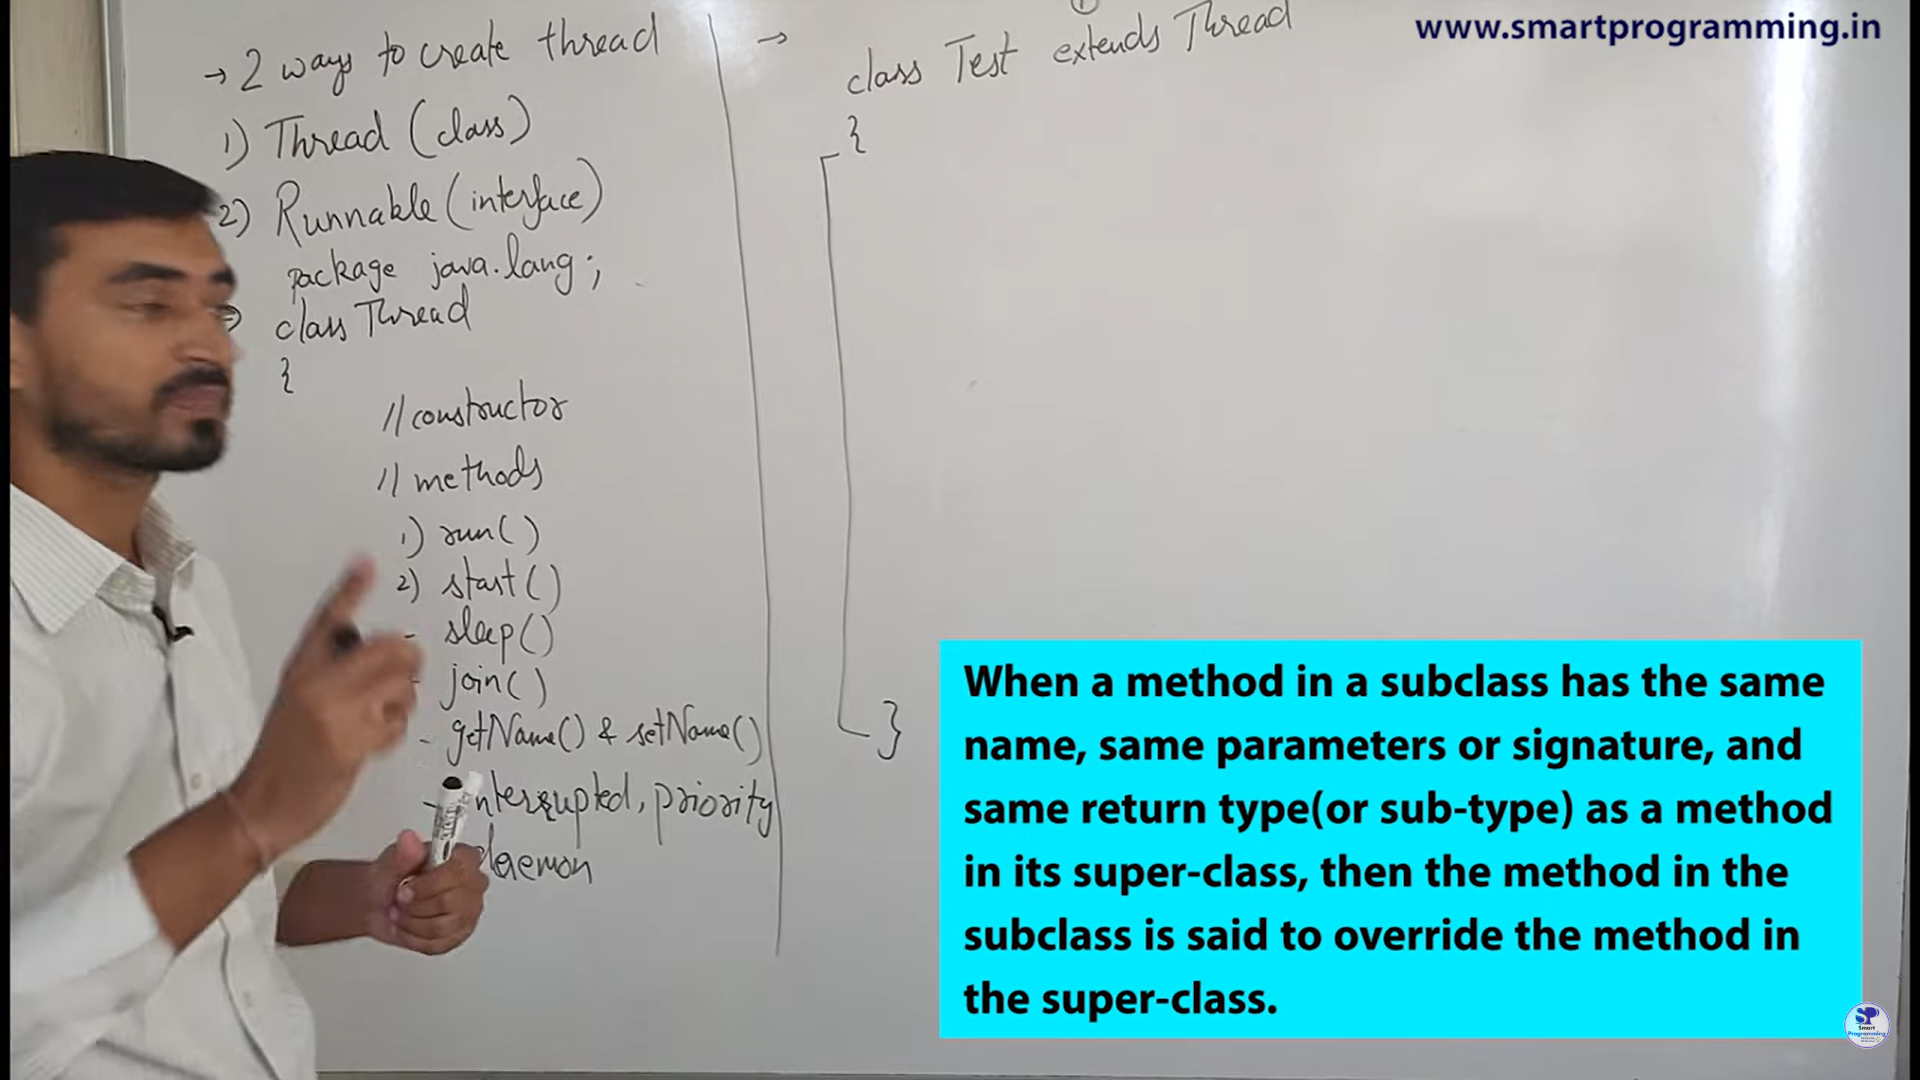 www.smartprogramming.in
→ 2 ways to create thread
1) Thread (class)
2) Runnable (interface)
package java.lang;
class Thread
{
// constructor
// methods
1) run()
2) start()
- sleep()
- join()
- getName() & setName()
- interrupted, priority
daemon
→
1
class Test extends Thread
{
}
When a method in a subclass has the same
name, same parameters or signature, and
same return type(or sub-type) as a method
in its super-class, then the method in the
subclass is said to override the method in
the super-class.
SP
Smart
Programming